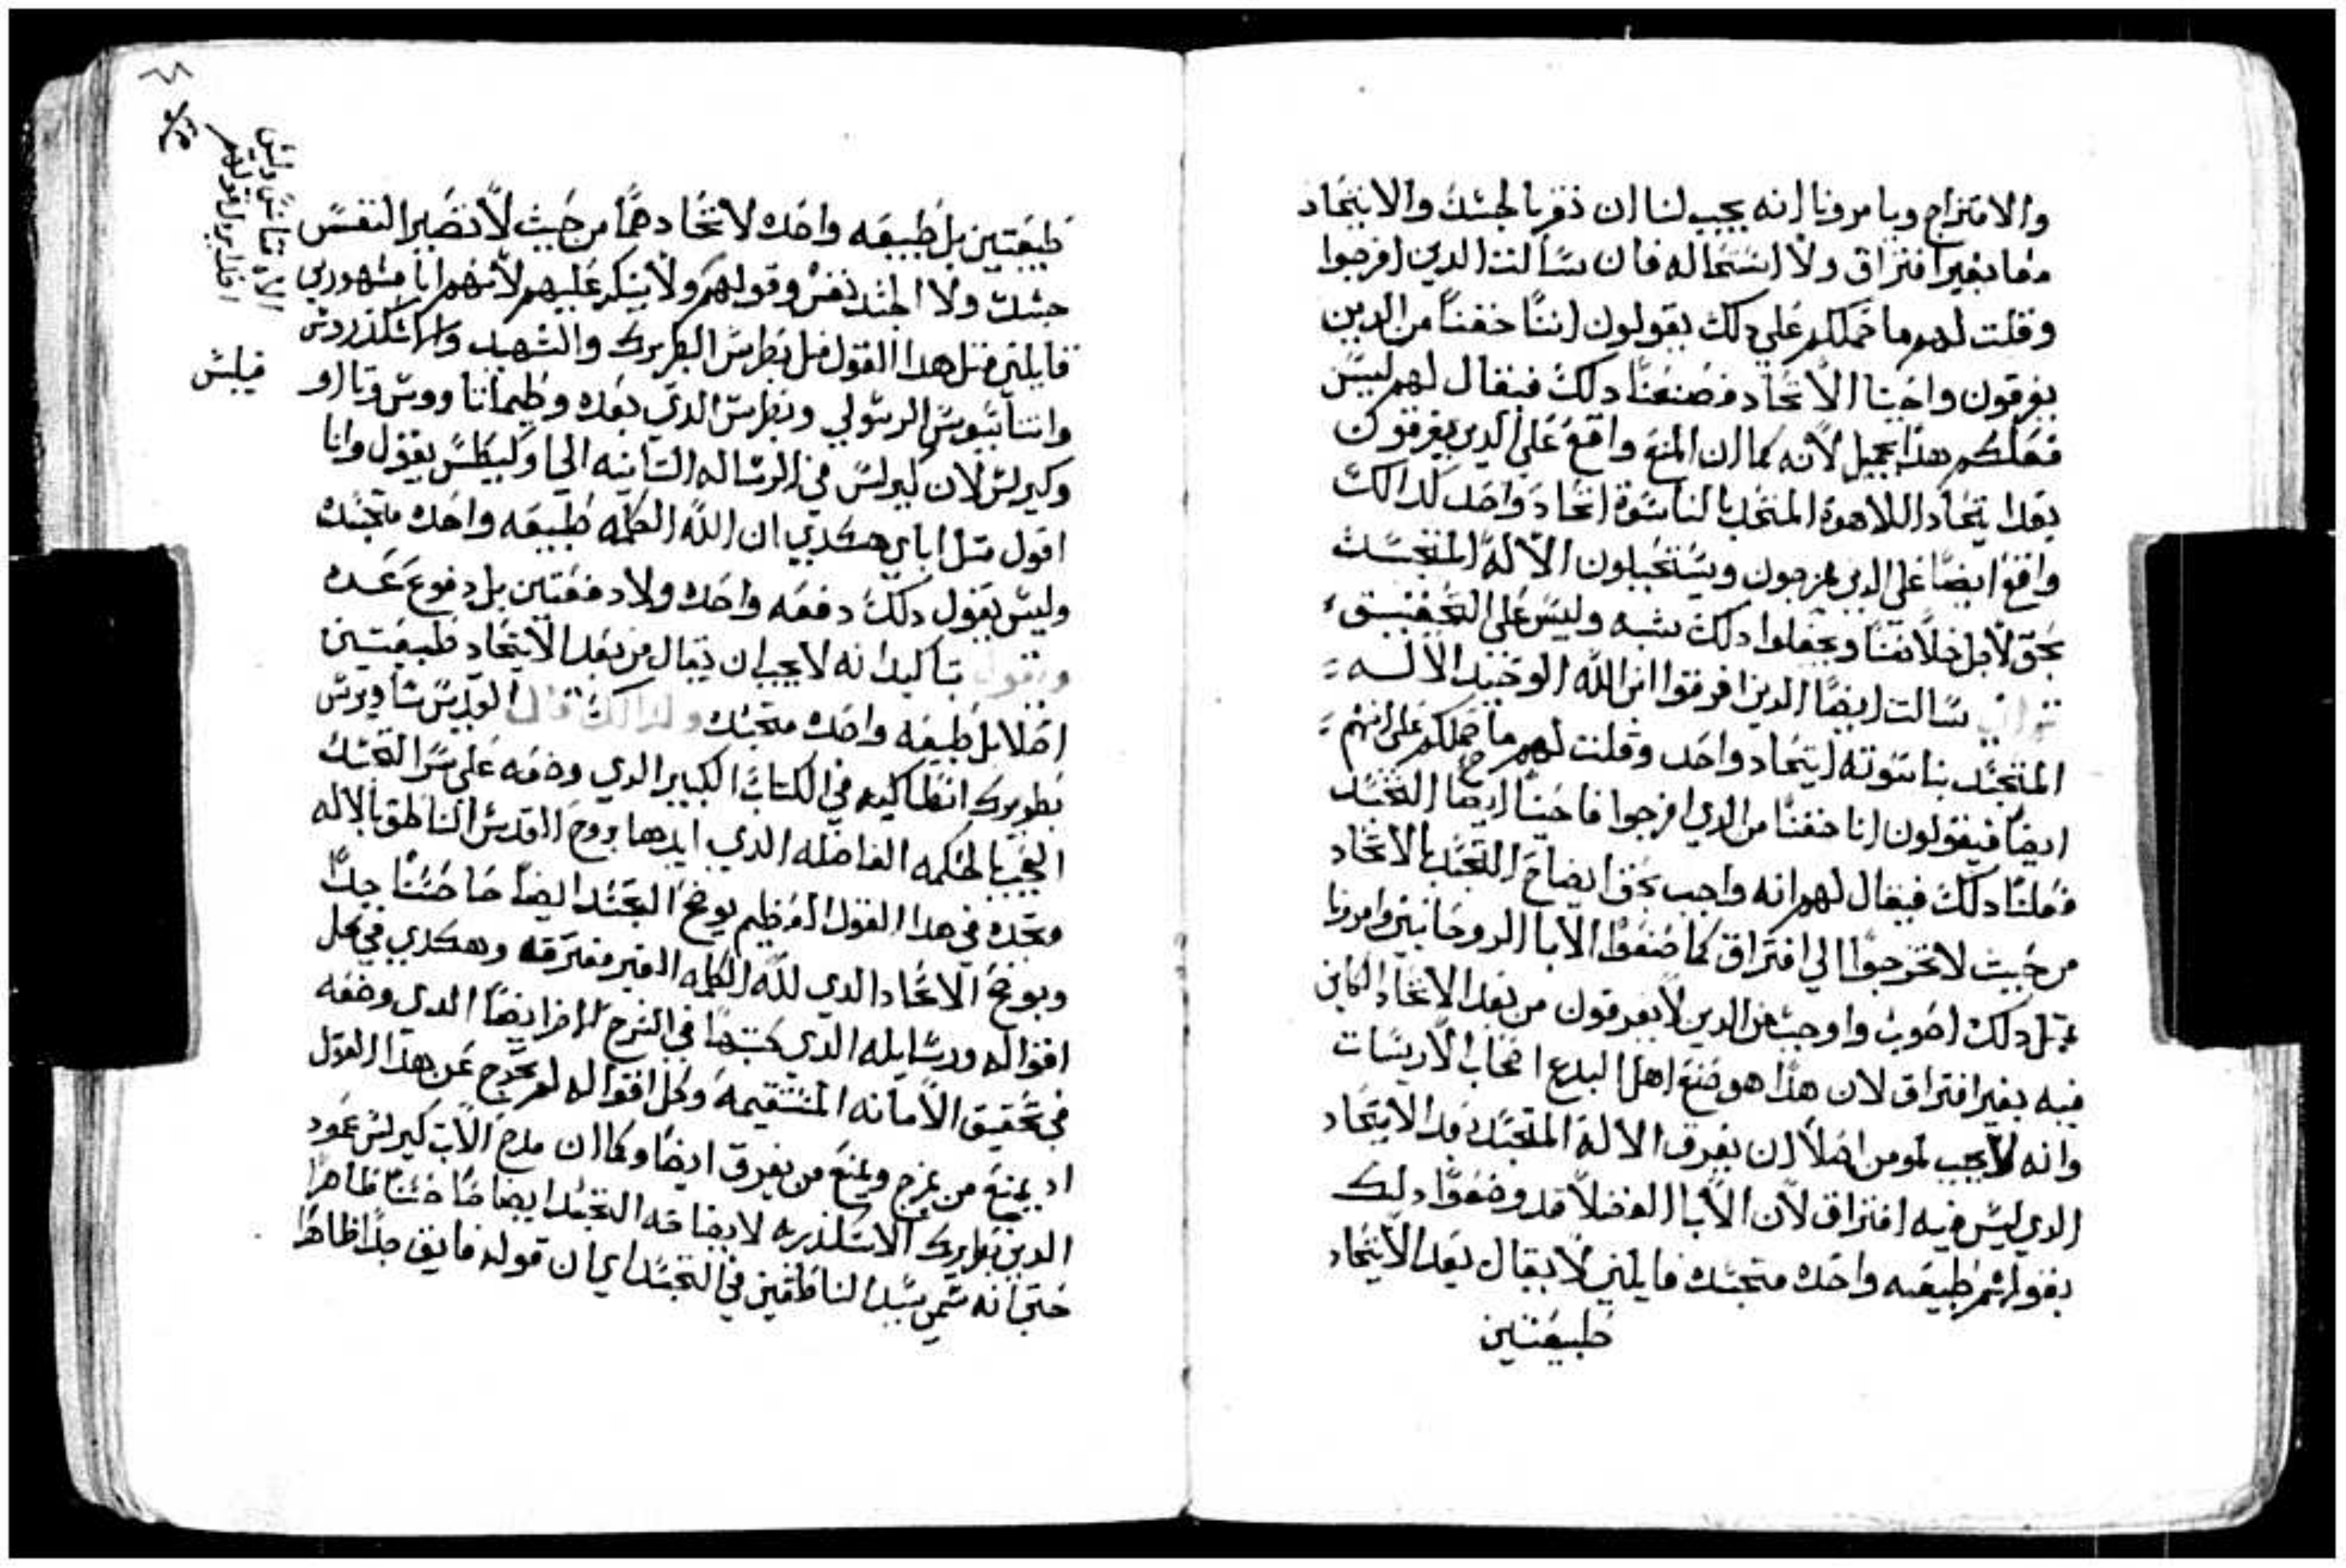 والامتزاج ويامرونا انه يجب لنا ان نقر بالجسد والاتحاد
معا بغير افتراق ولا استحاله فان سالت الدين افرجوا
وقلت لهم ما حملكم علي دلك يقولون اننا خفنا من الدين
يفرقون واحبنا الاتحاد فصنعنا دلك فيقال لهم ليس
فعلكم هدا بجميل لانه كما ان المنع واقع علي الدين يفرقون
بعد ايتحاد اللاهوة المتحد بالناسوة اتحاد واحد كدالك
واقع ايضا علي الدين يمزجون ويستحيلون الاله المتجسد
بحق لاجل خلاصنا ويجعلوا دلك شبه وليس علي التحقيق
سالت ايضا الدين افرقوا ابن الله الوحيد الاله
المتجسد بناسوته ايتحاد واحد وقلت لهم ما حملكم علي
ايضا فيقولون انا خفنا من الدي افرجوا فاحبنا ايضا التجسد
فعلنا دلك فيقال لهم انه واجب بحق ايضاح التجسد بالاتحاد
من حيث لا تخرجوا الي افتراق كما صنعوا الابا الروحانيين وامرونا
دلك اصوب واوجب من الدين لا يفرقون من بعد الاتحاد الكاين
فيه بغير افتراق لان هدا هو صنع اهل البدع اصحاب الاريسات
وانه لا يجب لمومن اصلا ان يفرق الاله المتجسد بعد الايتحاد
الدي ليس فيه افتراق لان الابا الفضلا قد وضعوا دلك
بقولهم طبيعه واحده متجسده فايلين لا يقال بعد الايتحاد
طبيعتين
طبيعتين بل طبيعه واحده لاتحادهما من حيث لا تصير النفس
جسد ولا الجسد نفس وقولهم ولا ينكر عليهم لانهم ابا مشهورين
قايلين مثل هدا القول مثل بطرس البطريرك والشهيد
واتناسيوس الرسولي وبطرس الدي بعده وطيماتاووس
وكيرلس لان كيرلس في الرساله التانيه الي يقول وانا
اقول متل اباي هكدي ان الله الكلمه طبيعه واحده متجسده
وليس يقول دلك دفعه واحده ولا دفعتين بل دفوع عده
ويقول بتاكيد انه لا يجب ان يقال من بعد الايتحاد طبيعتين
اصلا بل طبيعه واحده متجسده ولدالك قال القديس ساويرس
بطريرك انطاكيه في الكتاب الكبير الدي وضعه علي سر التجسد
العجيب بالحكمه الفاضله الدي ايدها بروح القدس الناطق بالاله
وتجده في هدا القول العظيم يوضح التجسد ايضاحا حسنا جدا
ويوضح الاتحاد الدي لله الكلمه الغير مفترقه وهكدي في كل
اقواله ورسايله الدي كتبها في الشرح الاخر ايضا الدي وضعه
في تحقيق الامانه المستقيمه وكل اقواله لم تخرج عن هدا القول
اد يمنع من يمزج ويمنع من يفرق ايضا وكما ان مدح الاب كيرلس عمود
الدين بطريرك الاسكندريه لايضاحه التجسد ايضاحا حسنا ظاهرا
حتي انه سمي سيد الناطقين في التجسد اي ان قوله فايق جدا ظاهرا
فيلبس